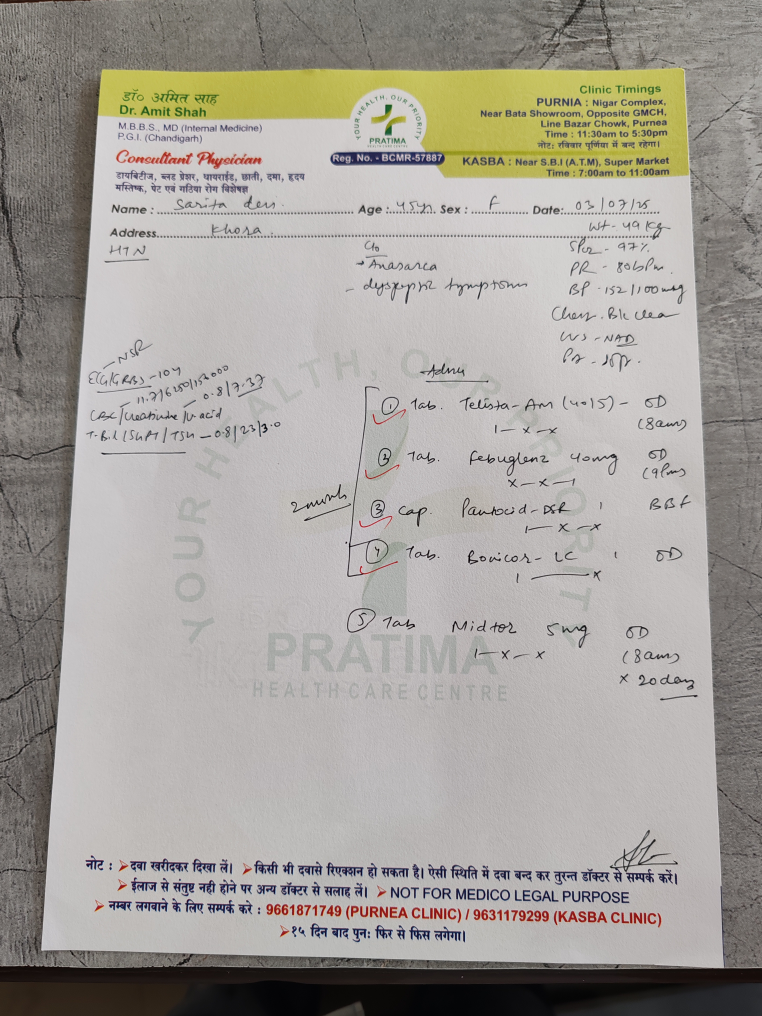 डॉ० अमित साह
Dr. Amit Shah
M.B.B.S., MD (Internal Medicine)
P.G.I. (Chandigarh)
Consultant Physician
डायबिटीज, ब्लड प्रेशर, थायराईड, छाती, दमा, हृदय
मस्तिष्क, पेट एवं गठिया रोग विशेषज्ञ
YOUR HEALTH, OUR PRIORITY
PRATIMA
Reg. No. - BCMR-57887
Clinic Timings
PURNIA : Nigar Complex,
Near Bata Showroom, Opposite GMCH,
Line Bazar Chowk, Purnea
Time : 11:30am to 5:30pm
नोट: रविवार पूर्णिया में बन्द रहेगा।
KASBA : Near S.B.I (A.T.M), Super Market
Time : 7:00am to 11:00am
Name : Sarita devi Age : 45yr Sex : F Date: 03/07/25
Address Khora Wt - 49 kg
HTN
C/o
Anasarca
- dyspeptic symptoms
SPO2 - 97%
PR - 80bpm
BP - 152/100
Chest - B/L clear
- NAD
- NSR
ECG/GRBS - 104
11.7/6250/153000
0.8/7.37
CBC/Creatinine/U acid
T.Bil/SGPT/TSH - 0.8/23/3.0
Adv
① Tab. Telista-AM (40/5) - OD
1-x-x (8am)
Tab. Febuglenz 40mg OD
x-x-1 (9pm)
2 month
③ Cap. Pantocid-DSR 1 BBF
1-x-x
④ Tab. Bonicor-LC 1 OD
1 — x
⑤ Tab Midtor 5mg OD
1-x-x (8am)
x 20 day
YOUR HEALTH, OUR PRIORITY
PRATIMA
HEALTH CARE CENTRE
नोट : ➤दवा खरीदकर दिखा लें। ➤किसी भी दवासे रिएक्शन हो सकता है। ऐसी स्थिति में दवा बन्द कर तुरन्त डॉक्टर से सम्पर्क करें।
➤ईलाज से संतुष्ट नही होने पर अन्य डॉक्टर से सलाह लें। ➤NOT FOR MEDICO LEGAL PURPOSE
➤नम्बर लगवाने के लिए सम्पर्क करे : 9661871749 (PURNEA CLINIC) / 9631179299 (KASBA CLINIC)
➤१५ दिन बाद पुनः फिर से फिस लगेगा।